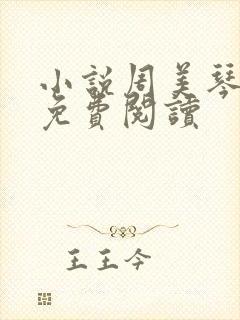 小說周美琴
免費閱讀
王王今